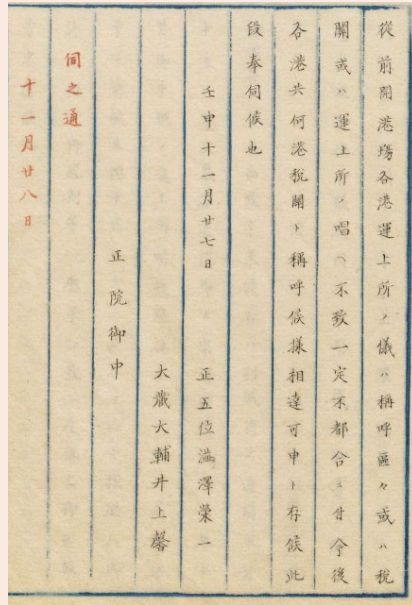 從前開港場各港運上所ノ儀ハ稱呼區々或ハ税
關或ハ運上所ノ唱ヘ不致一定不都合ニ付今後
各港共何港税關ト稱呼候様相達可申ト存候此
段奉伺候也
壬申十一月廿七日　正五位澁澤榮一
大藏大輔井上馨
正院御中
伺之通
十一月廿八日